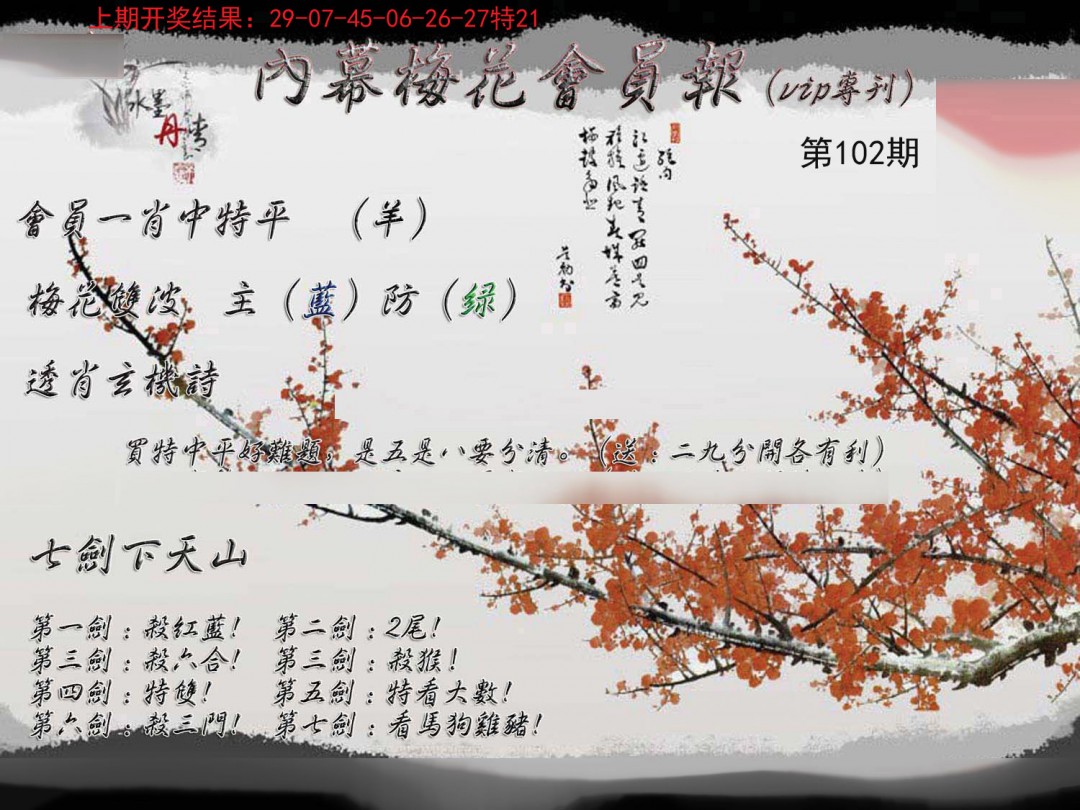 上期开奖结果：29-07-45-06-26-27特21
內幕梅花會員報（vip專刊）
水墨
丹青
第102期
會員一肖中特平 （羊）
梅花雙波 主（藍）防（绿）
透肖玄機詩
買特中平好難題，是五是八要分清。（送：二九分開各有利）
七劍下天山
第一劍：殺紅藍！ 第二劍：2尾！
第三劍：殺六合！ 第三劍：殺猴！
第四劍：特雙！ 第五劍：特看大數！
第六劍：殺三門！ 第七劍：看馬狗雞豬！